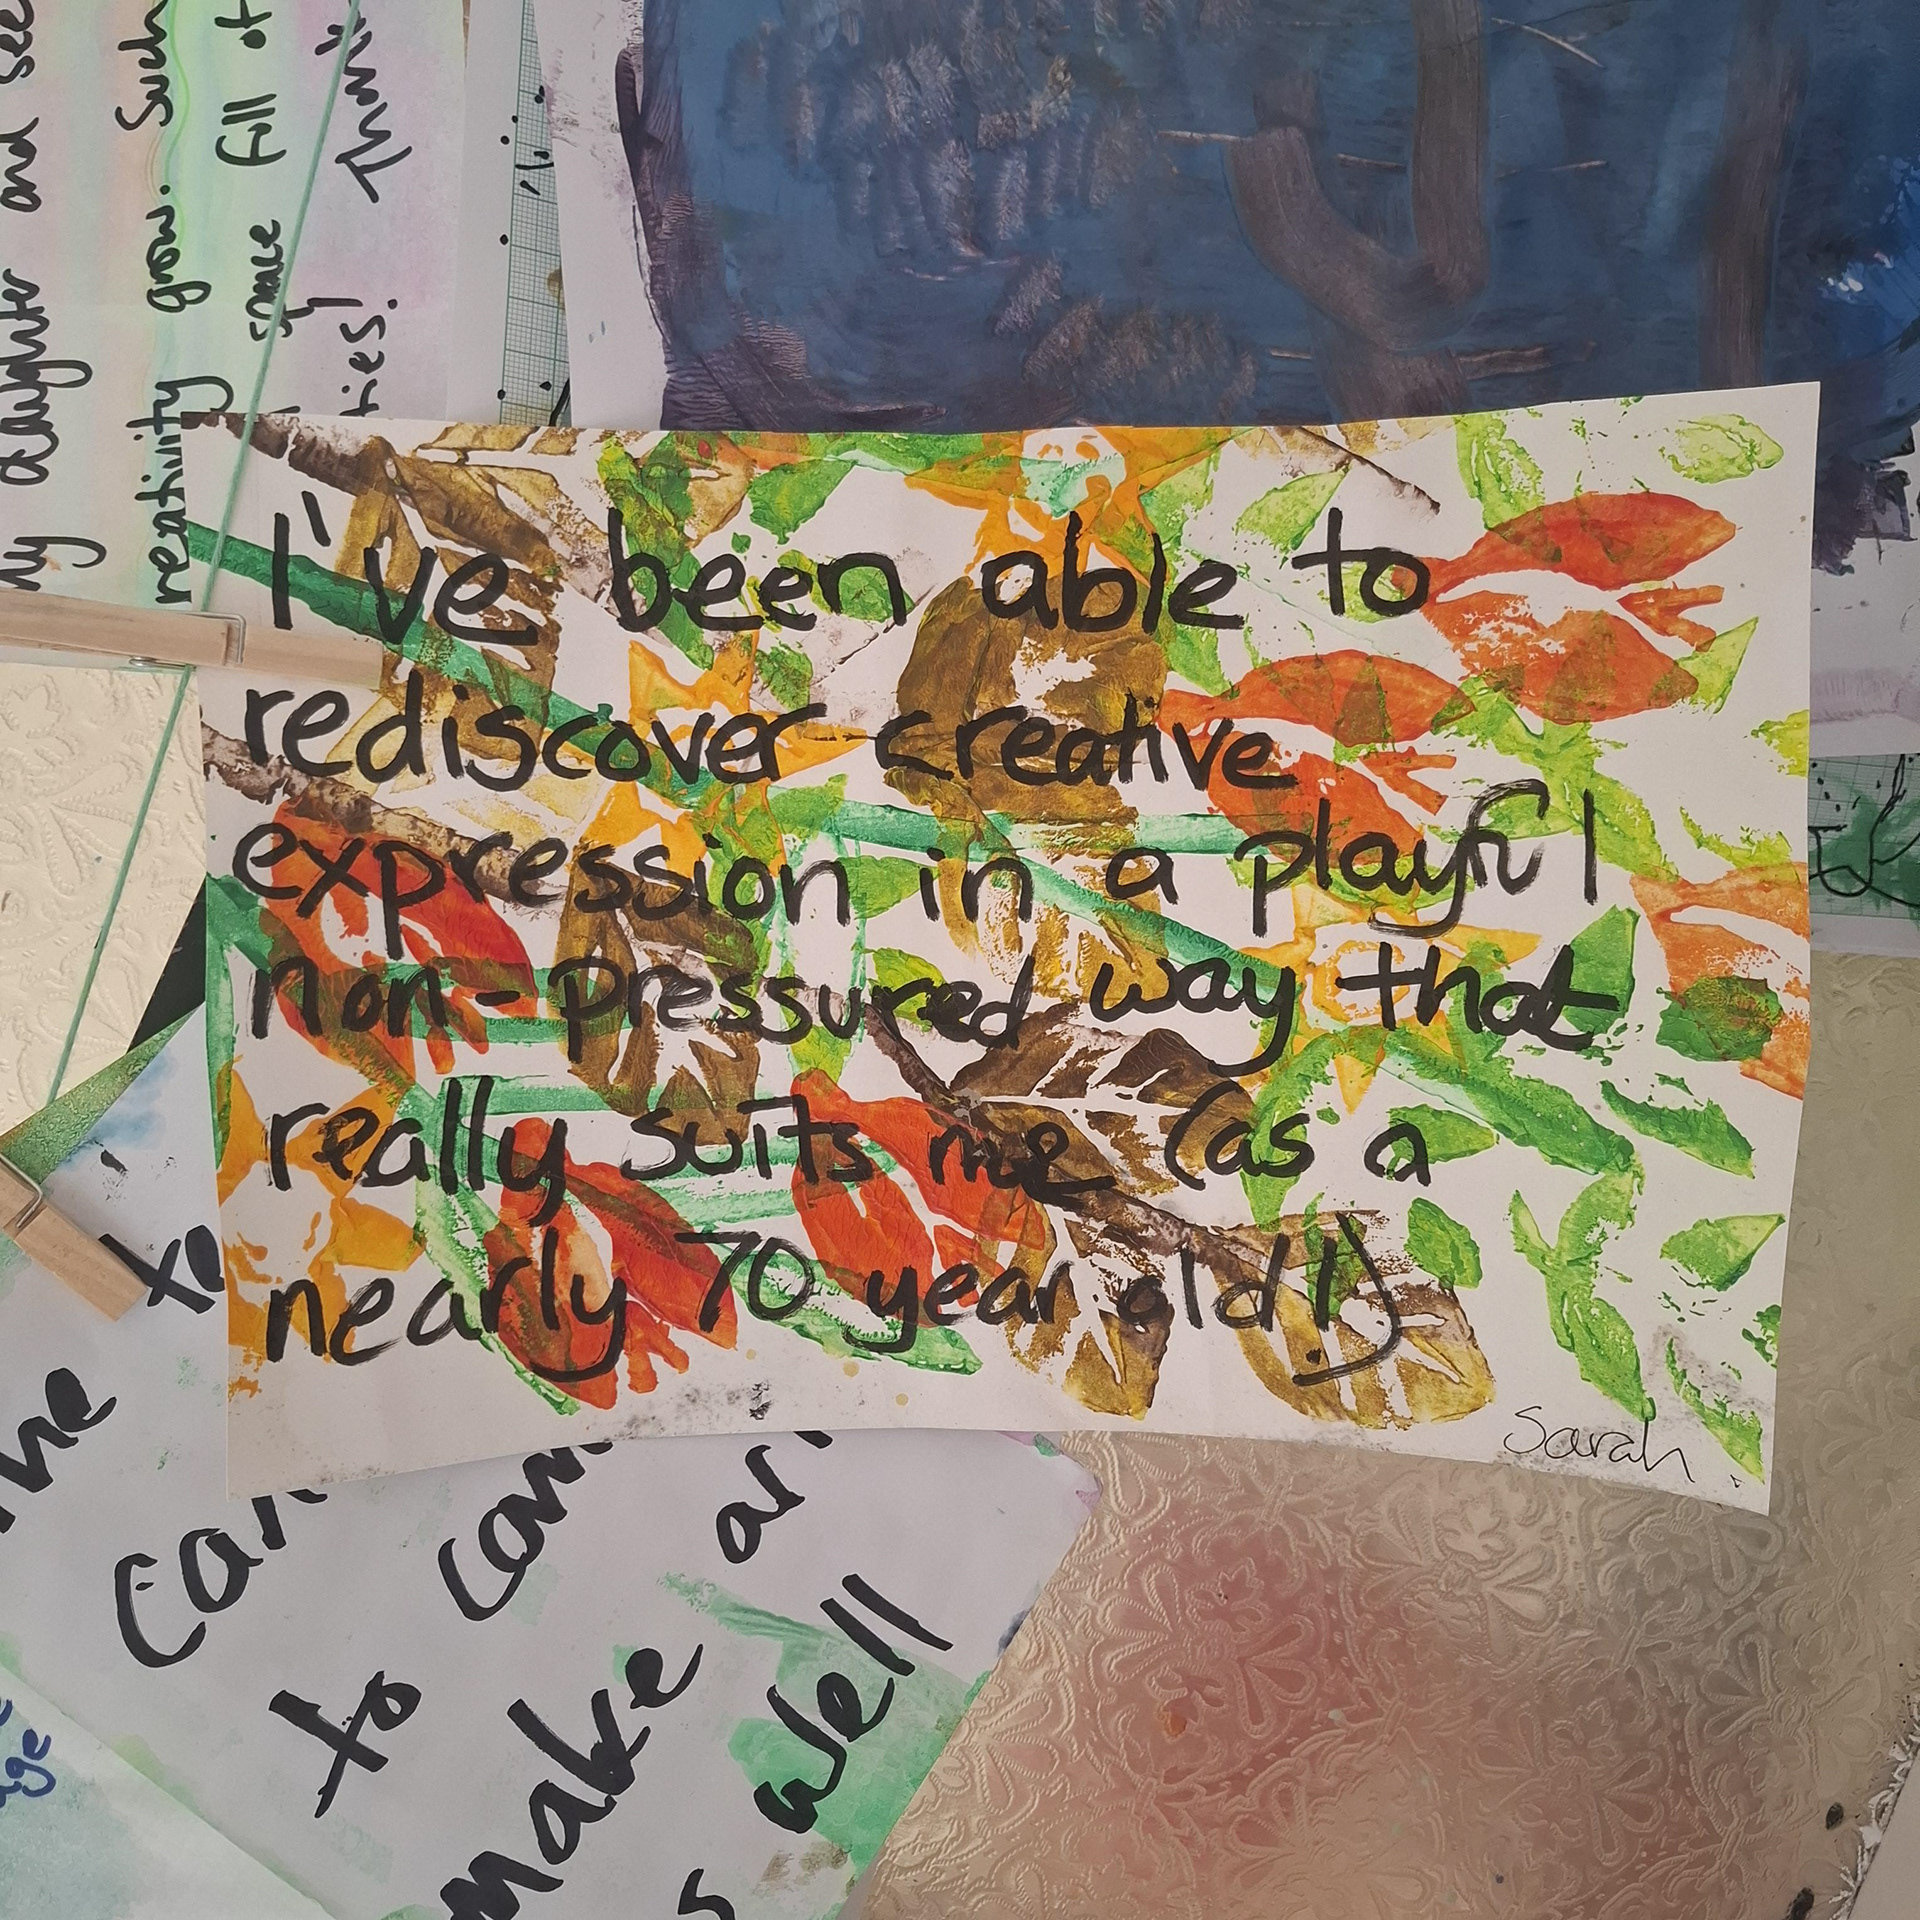 I've been able to
rediscover creative
expression in a playful
non-pressured way that
really suits me (as a
nearly 70 year old!)
Sarah
daughter and see
creativity grow. Such
space full of
Thank
to
can
to
make art
as well